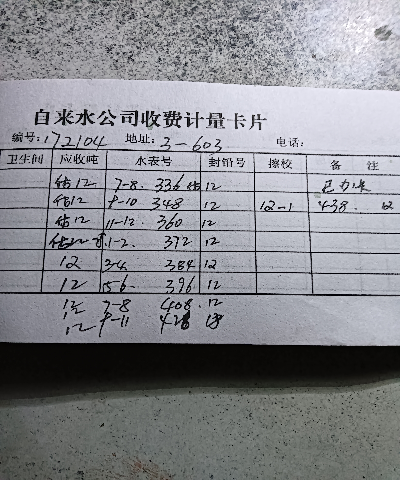 自来水公司收费计量卡片
编号: 172104 地址: 3-603 电话:
卫生间 应收吨 水表号 封铅号 擦校 备 注
估12 7-8. 336 估12
估12 9-10 348 12 12-1 438. 12
估12 11-12. 360 12
1-2. 372 12
12 3-4 384 12
12 5-6. 396 12
12 7-8 408. 12
12 9-11